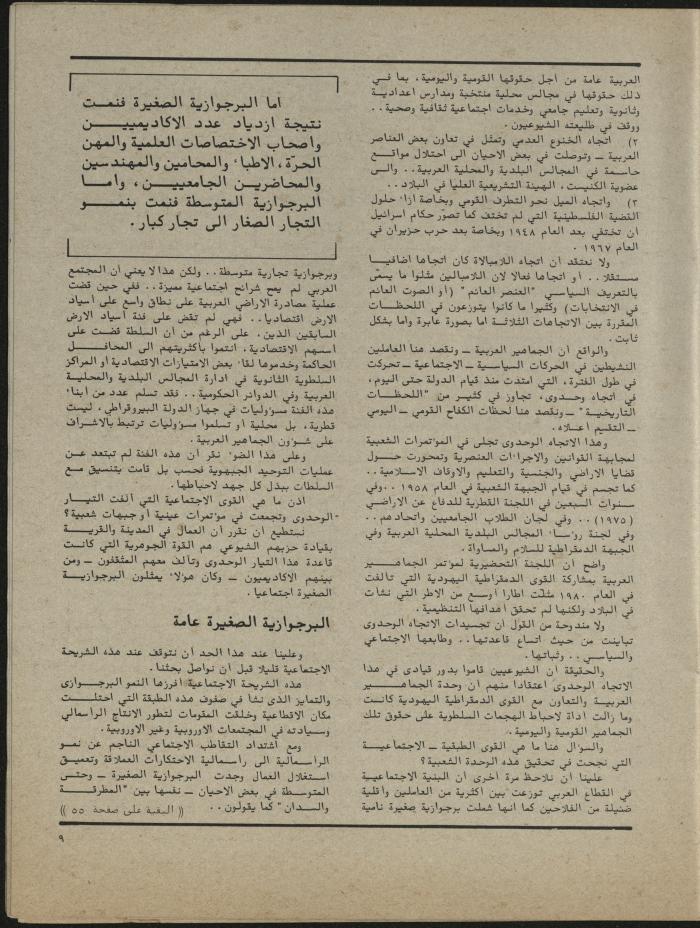 العربية عامة من اجل حقوقها القومية واليومية، بما فـي
ذلك حقوقها في مجالس محلية منتخبة ومدارس اعداديـة
وثانوية وتعليم جامعي وخدمات اجتماعية ثقافية وصحية..
ووقف في طليعته الشيوعيون.
٢) اتجاه الخنوع العدمي وتمثل في تعاون بعض العناصر
العربية ــ وتوصلت في بعض الاحيان الى احتلال مواقـع
حاسمة في المجالس البلدية والمحلية العربية.. والـى
عضوية الكنيست، الهيئة التشريعية العليا في البلاد..
٣) واتجاه الميل نحو التطرف القومي وبخاصة ازاء حلول
القضية الفلسطينية التي لم تختف كما تصوّر حكام اسرائيل
ان تختفي بعد العام ١٩٤٨ وبخاصة بعد حرب حزيران في
العام ١٩٦٧ .
ولا نعتقد ان اتجاه اللامبالاة كان اتجاها اضافيـا
مستقلا.. او اتجاها فعالا لان اللامبالين مثلوا ما يسمّى
بالتعريف السياسي "العنصر العائم" (أو الصوت العائم
في الانتخابات) وكثيرا ما كانوا يتوزعون في اللحظـات
المقررة بين الاتجاهات الثلاثـة اما بصورة عابرة واما بشكل
ثابت.
والواقع ان الجماهير العربية ــ ونقصد هنا العاملين
النشيطين في الحركات السياسـية ــ الاجتماعية ــ تحركت
في طول الفترة، التي امتدت منذ قيام الدولة حتى اليوم،
في اتجاه وحـدوي، تجاوز في كثير من "اللحظــات
التاريخية" ــ ونقصد هنا لحظات الكفاح القومي ــ اليومي
ــ التقيم اعلاه.
وهذا الاتجاه الوحدوي تجلى في المؤتمرات الشعبية
لمجابهة القوانين والاجراءات العنصرية وتمحورت حــول
قضايا الاراضي والجنسية والتعليم والاوقاف الاسلامية..
كما تجسم في قيام الجبهة الشعبية في العام ١٩٥٨ ..وفي
سنوات السبعين في اللجنة القطرية للدفاع عن الاراضـي
(١٩٧٥).. وفي لجان الطلاب الجامعيين واتحادهم..
وفي لجنة رؤساء المجالس البلدية المحلية العربية وفي
الجبهة الدمقراطية للسلام والمساواة.
واضح ان اللجنة التحضيرية لمؤتمر الجماهــير
العربية بمشاركة القوى الدمقراطية اليهودية التي تألفت
في العام ١٩٨٠ مثّلت اطارا اوسع من الاطر التي نشأت
في البلاد ولكنها لم تحقق اهدافها التنظيمية.
ولا مندوحة من القول ان تجسيدات الاتجاه الوحدوى
تباينت من حيث اتساع قاعدتها.. وطابعها الاجتماعي
والسياسي.. وثباتها.
والحقيقة ان الشيوعيين قاموا بدور قيادى في هذا
الاتجاه الوحدوى اعتقادا منهم ان وحدة الجماهــير
العربيـة والتعاون مع القوى الدمقراطية اليهودية كانـت
وما زالت اداة لاحباط الهجمات السلطوية على حقوق تلك
الجماهير القومية واليومية.
والسؤال هنا ما هي القوى الطبقية ــ الاجتماعيــة
التي نجحت في تحقيق هذه الوحدة الشعبية؟
علينا ان نلاحظ مرة اخرى ان البنية الاجتماعيـة
في القطاع العربي توزعت بين اكثرية من العاملين واقلية
ضئيلة من الفلاحين كما انها شملت برجوازية صغيرة نامية
اما البرجوازية الصغيرة فنمت
نتيجة ازدياد عدد الاكاديميــين
واصحاب الاختصاصات العلمية والمهن
الحرّة، الاطباء والمحامين والمهندسين
والمحاضريـن الجامعيـين، وامـا
البرجوازية المتوسطة فنمت بنمــو
التجار الصغار الى تجار كبار.
وبرجوازية تجارية متوسطة.. ولكن هذا لا يعني أن المجتمع
العربي لم يمح شرائح اجتماعية مميزة.. ففي حين قضت
عملية مصادرة الاراضي العربية على نطاق واسع على أسياد
الارض اقتصاديا.. فهي لم تقض على فئة أسياد الارض
السابقين الذين، على الرغم من أن السلطة قضت على
أسسهم الاقتصادية، انتموا بأكثريتهم الى المحافــل
الحاكمة وخدموها لقاء بعض الامتيازات الاقتصادية أو المراكز
السلطوية الثانوية في ادارة المجالس البلدية والمحليـة
العربية وفي الدوائر الحكومية.. فقد تسلم عدد من أبناء
هذه الفئة مسؤوليات في جهاز الدولة البيروقراطي، ليست
قطرية، بل محلية أو تسلموا مسؤوليات ترتبط بالاشراف
على شؤون الجماهير العربية.
وعلى هذا الضوء نقر أن هذه الفئة لم تبتعد عـن
عمليات التوحيد الجبهوية فحسب بل قامت بتنسيق مـع
السلطات ببذل كل جهد لاحباطها.
اذن ما هي القوى الاجتماعية التي ألفت التيــار
الوحدوى وتجمعت في مؤتمرات عينية أو جبهات شعبية؟
نستطيع ان نقرر أن العمال في المدينة والقريــة
بقيادة حزبهم الشيوعي هم القوة الجوهرية التي كانـت
قاعدة هذا التيار الوحدوى وتآلف معهم المثقفون ــ ومن
بينهم الاكاديميون ــ وكان هؤلاء يمثلون البرجوازيــة
الصغيرة اجتماعيا.
البرجوازية الصغيرة عامة
وعلينا عند هذا الحد أن نتوقف عند هذه الشريحة
الاجتماعية قليلا قبل أن نواصل بحثنا.
هذه الشريحة الاجتماعية أفرزها النمو البرجــوازى
والتمايز الذى نشأ في صفوف هذه الطبقة التي احتلــت
مكان الاقطاعية وخلقت المقومات لتطور الانتاج الرأسمالي
وسـيادته في المجتمعات الاوروبية وغير الاوروبية.
ومع اشتداد التقاطب الاجتماعي الناجم عن نمـو
الرأسـمالية الى رأسمالية الاحتكارات العملاقة وتعميـق
استغلال العمال وجدت البرجوازية الصغيرة ــ وحتـى
المتوسطة في بعض الاحيـان ــ نفسها بين "المطرقــة
والسـدان" كما يقولون..
(( البقية على صفحة ٥٥ ))
٩